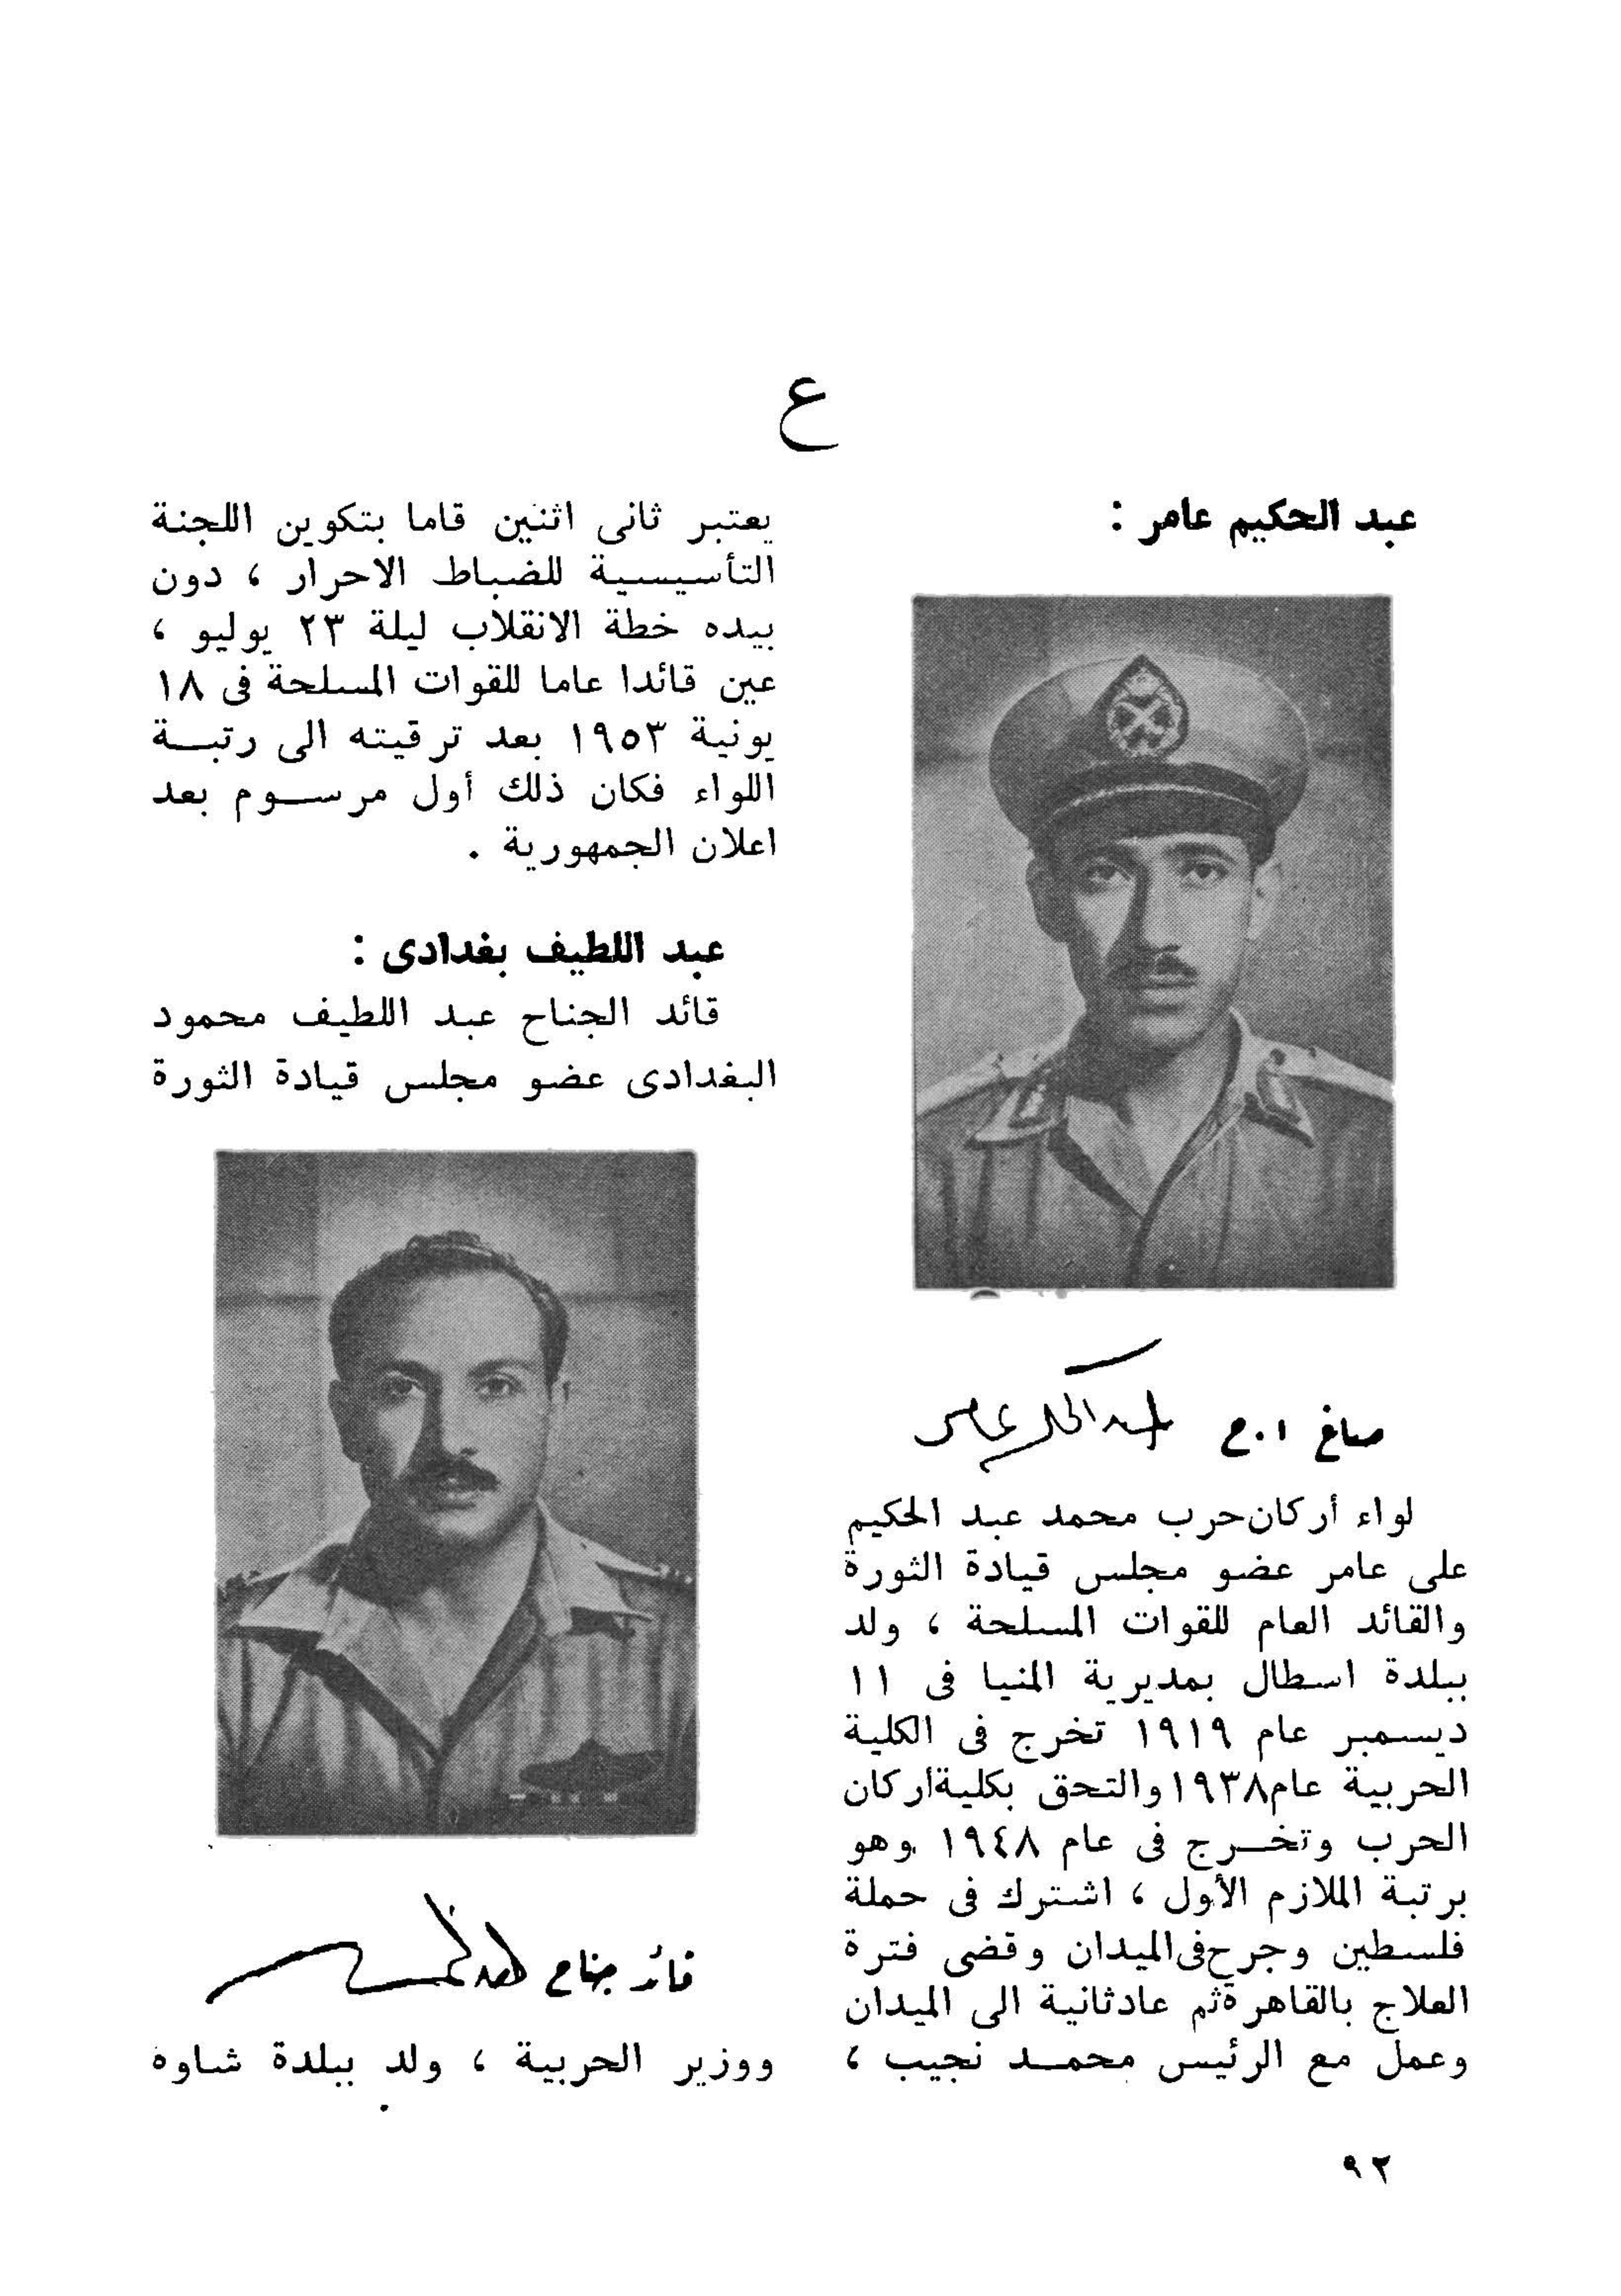 ع
عبد الحكيم عامر :
صاغ ا.ح عبد الحكيم عامر
لواء أركان حرب محمد عبد الحكيم
على عامر عضو مجلس قيادة الثورة
والقائد العام للقوات المسلحة ، ولد
ببلدة اسطال بمديرية المنيا فى ١١
ديسمبر عام ١٩١٩ تخرج فى الكلية
الحربية عام ١٩٣٨ والتحق بكلية أركان
الحرب وتخرج فى عام ١٩٤٨ وهو
برتبة الملازم الأول ، اشترك فى حملة
فلسطين وجرح فى الميدان وقضى فترة
العلاج بالقاهرة ثم عاد ثانية الى الميدان
وعمل مع الرئيس محمد نجيب ،
يعتبر ثانى اثنين قاما بتكوين اللجنة
التأسيسية للضباط الاحرار ، دون
بيده خطة الانقلاب ليلة ٢٣ يوليو ،
عين قائدا عاما للقوات المسلحة فى ١٨
يونية ١٩٥٣ بعد ترقيته الى رتبة
اللواء فكان ذلك أول مرسوم بعد
اعلان الجمهورية .
عبد اللطيف بغدادى :
قائد الجناح عبد اللطيف محمود
البغدادى عضو مجلس قيادة الثورة
قائد جناح
ووزير الحربية ، ولد ببلدة شاوه
٩٢